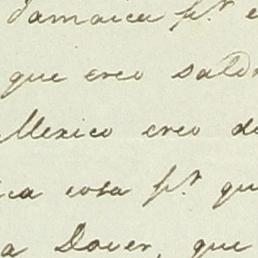 Jamaica pr. e
que creo saldr
Mexico creo d
ica cosa pr. qu
a Dover, que